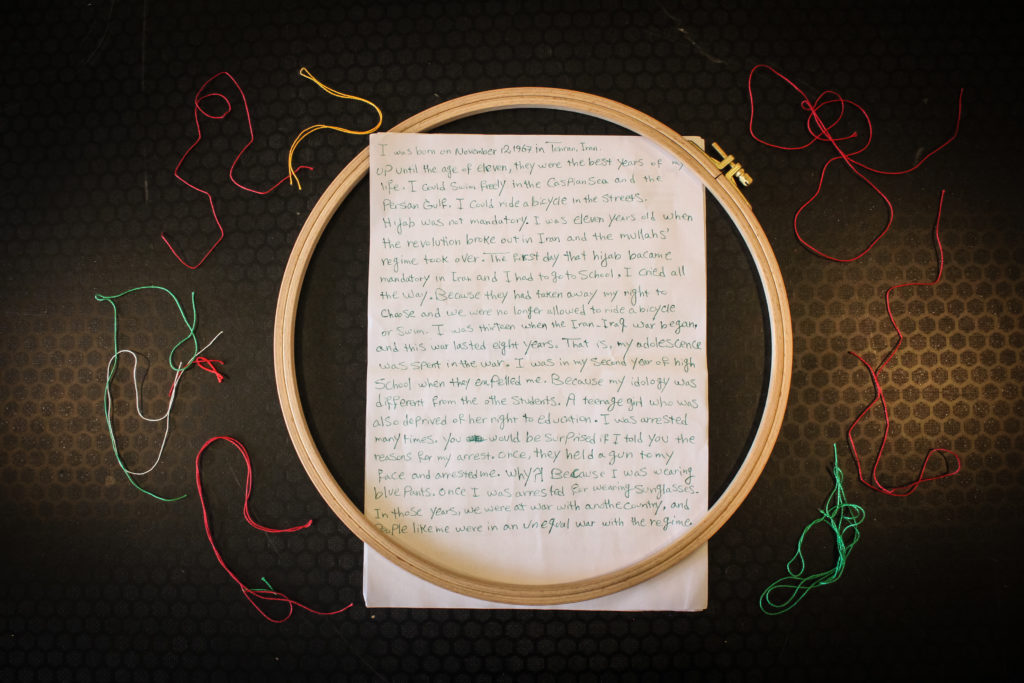 I was born on November 12, 1967 in Tehran, Iran.
Up until the age of eleven, they were the best years of my
life. I could swim freely in the Caspian Sea and the
Persian Gulf. I could ride a bicycle in the streets.
Hijab was not mandatory. I was eleven years old when
the revolution broke out in Iran and the mullahs'
regime took over. The first day that hijab bacame
mandatory in Iran and I had to go to School. I cried all
the way. Because they had taken away my right to
choose and we were no longer allowed to ride a bicycle
or swim. I was thirteen when the Iran-Iraq war began,
and this war lasted eight years. That is, my adolescence
was spent in the war. I was in my second year of high
School when they expelled me. Because my idology was
different from the othe students. A teenage girl who was
also deprived of her right to education. I was arrested
many times. you would be surprised if I told you the
reasons for my arrest. once, they held a gun to my
face and arrested me. Why?! Because I was wearing
blue pants. Once I was arrested for wearing sunglasses.
In those years, we were at war with anothe country, and
people like me were in an unequal war with the regime.